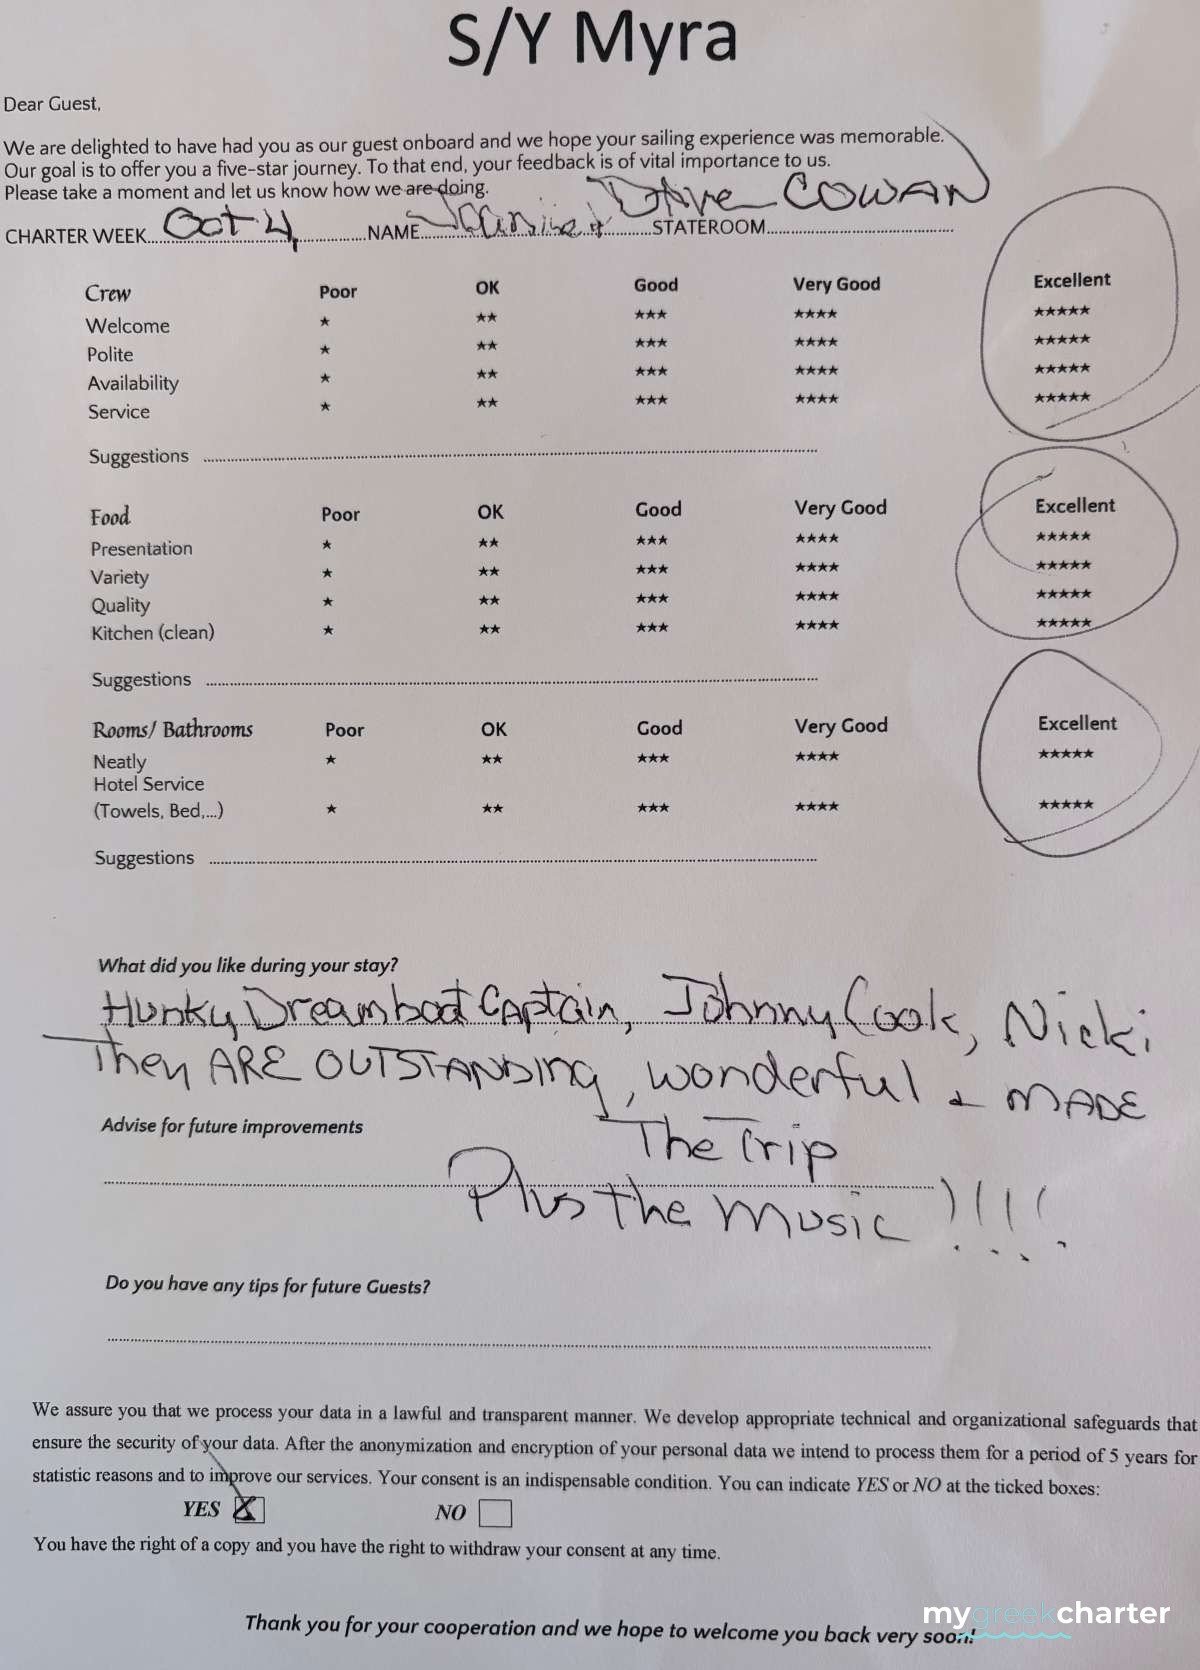 S/Y Myra
Dear Guest,
We are delighted to have had you as our guest onboard and we hope your sailing experience was memorable.
Our goal is to offer you a five-star journey. To that end, your feedback is of vital importance to us.
Please take a moment and let us know how we are doing.
CHARTER WEEK Oct 4 NAME & Dave COWAN STATEROOM
Crew Poor OK Good Very Good Excellent
Welcome ★ ★★ ★★★ ★★★★ ★★★★★
Polite ★ ★★ ★★★ ★★★★ ★★★★★
Availability ★ ★★ ★★★ ★★★★ ★★★★★
Service ★ ★★ ★★★ ★★★★ ★★★★★
Suggestions
Food Poor OK Good Very Good Excellent
Presentation ★ ★★ ★★★ ★★★★ ★★★★★
Variety ★ ★★ ★★★ ★★★★ ★★★★★
Quality ★ ★★ ★★★ ★★★★ ★★★★★
Kitchen (clean) ★ ★★ ★★★ ★★★★ ★★★★★
Suggestions
Rooms/ Bathrooms Poor OK Good Very Good Excellent
Neatly ★ ★★ ★★★ ★★★★ ★★★★★
Hotel Service
(Towels, Bed,...) ★ ★★ ★★★ ★★★★ ★★★★★
Suggestions
What did you like during your stay?
Hunky Dreamboat Captain, Johnny Cook, Nicki
They ARE OUTSTANDING, wonderful & MADE
Advise for future improvements
The Trip
Plus the music !!!!
Do you have any tips for future Guests?
We assure you that we process your data in a lawful and transparent manner. We develop appropriate technical and organizational safeguards that
ensure the security of your data. After the anonymization and encryption of your personal data we intend to process them for a period of 5 years for
statistic reasons and to improve our services. Your consent is an indispensable condition. You can indicate YES or NO at the ticked boxes:
YES X NO
You have the right of a copy and you have the right to withdraw your consent at any time.
Thank you for your cooperation and we hope to welcome you back very soon!
mygreekcharter